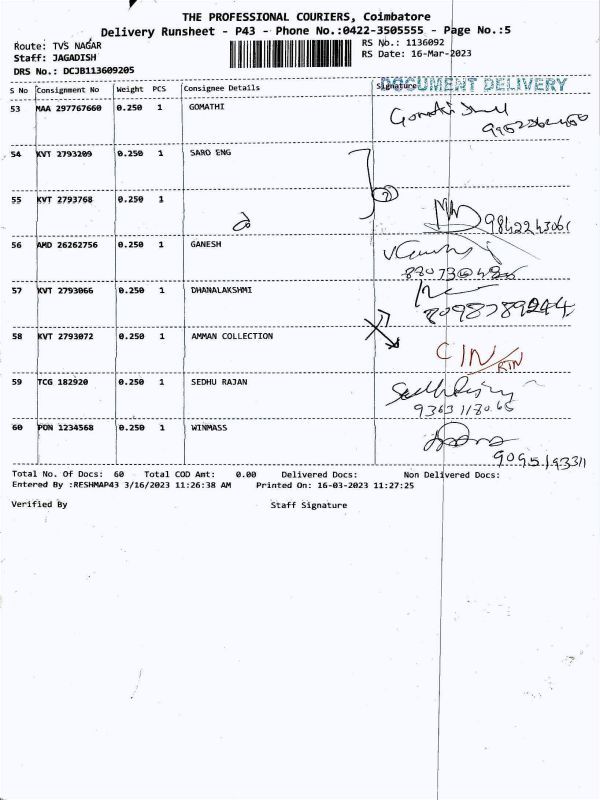 THE PROFESSIONAL COURIERS, Coimbatore
Delivery Runsheet - P43 - Phone No.:0422-3505555 - Page No.:5
Route: TVS NAGAR RS No.: 1136092
Staff: JAGADISH RS Date: 16-Mar-2023
DRS No.: DCJB113609205
DOCUMENT DELIVERY
S No Consignment No Weight PCS Consignee Details Signature
53 MAA 297767660 0.250 1 GOMATHI
54 KVT 2793209 0.250 1 SARO ENG
2
55 KVT 2793768 0.250 1
9842243061
56 AMD 26262756 0.250 1 GANESH
57 KVT 2793066 0.250 1 DHANALAKSHMI
8098789244
58 KVT 2793072 0.250 1 AMMAN COLLECTION
CIN/RTN
59 TCG 182920 0.250 1 SEDHU RAJAN
9363118065
60 PON 1234568 0.250 1 WINMASS
9095193311
Total No. Of Docs: 60 Total COD Amt: 0.00 Delivered Docs: Non Delivered Docs:
Entered By :RESHMAP43 3/16/2023 11:26:38 AM Printed On: 16-03-2023 11:27:25
Verified By Staff Signature